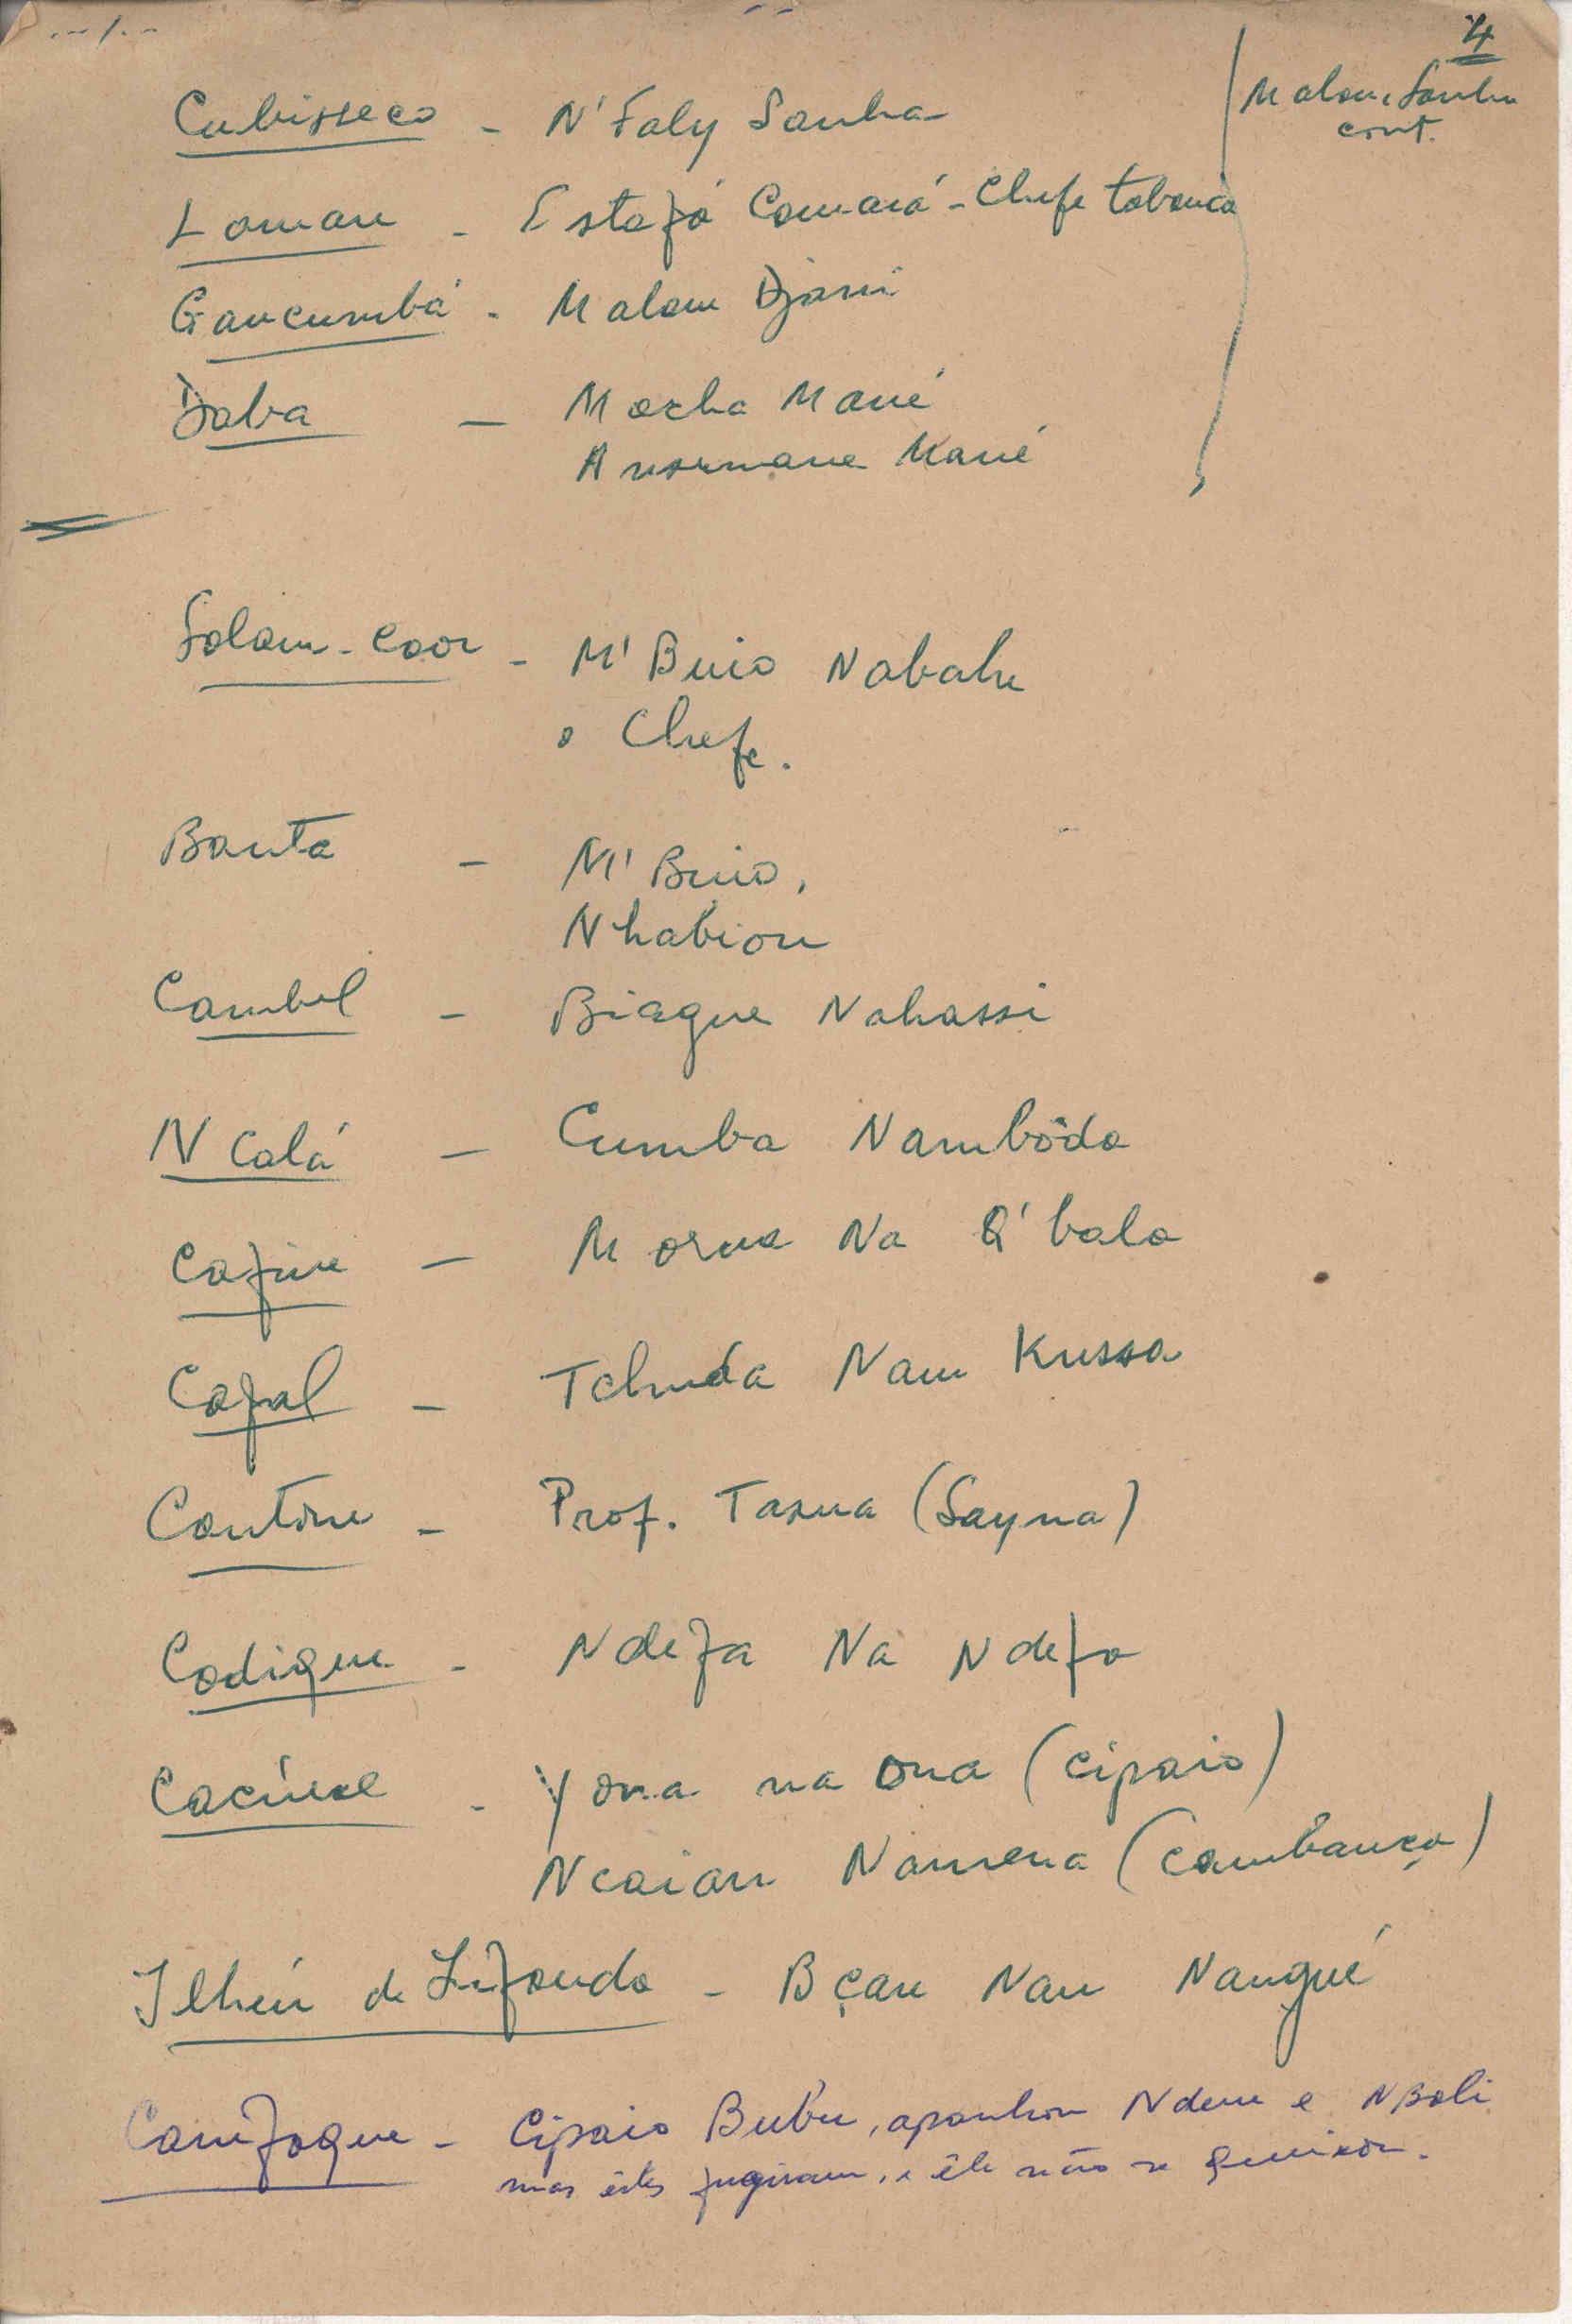 4
Malam Sanha
cont.
Cubisseco - N'Faly Sanha
Laman - Estafá Camará - Chefe tabanca
Gancumbá - Malam Djani
Daba - Mocha Mané
Ansumane Mané
Salam-Coor - M'Buio Nabahn
o Chefe.
Banta - M'Buio,
Nhabion
Cambil - Biague Nahassi
N Calá - Cumba Nambôda
Cafine - Morna Na Q'bala
Cafal - Tchuda Nam Kussa
Cantone - Prof. Tasna (Sayna)
Cadique - Ndefa Na Ndefa
Cacine - Yona na Ona (cipaio)
Ncaian Namena (cambança)
Ilhéu de Infanda - Bçan Nan Nangué
Canifaque - Cipaio Bubu, apanhou Ndene e NBali
mas êstes fugiram, e êle não se queixou.